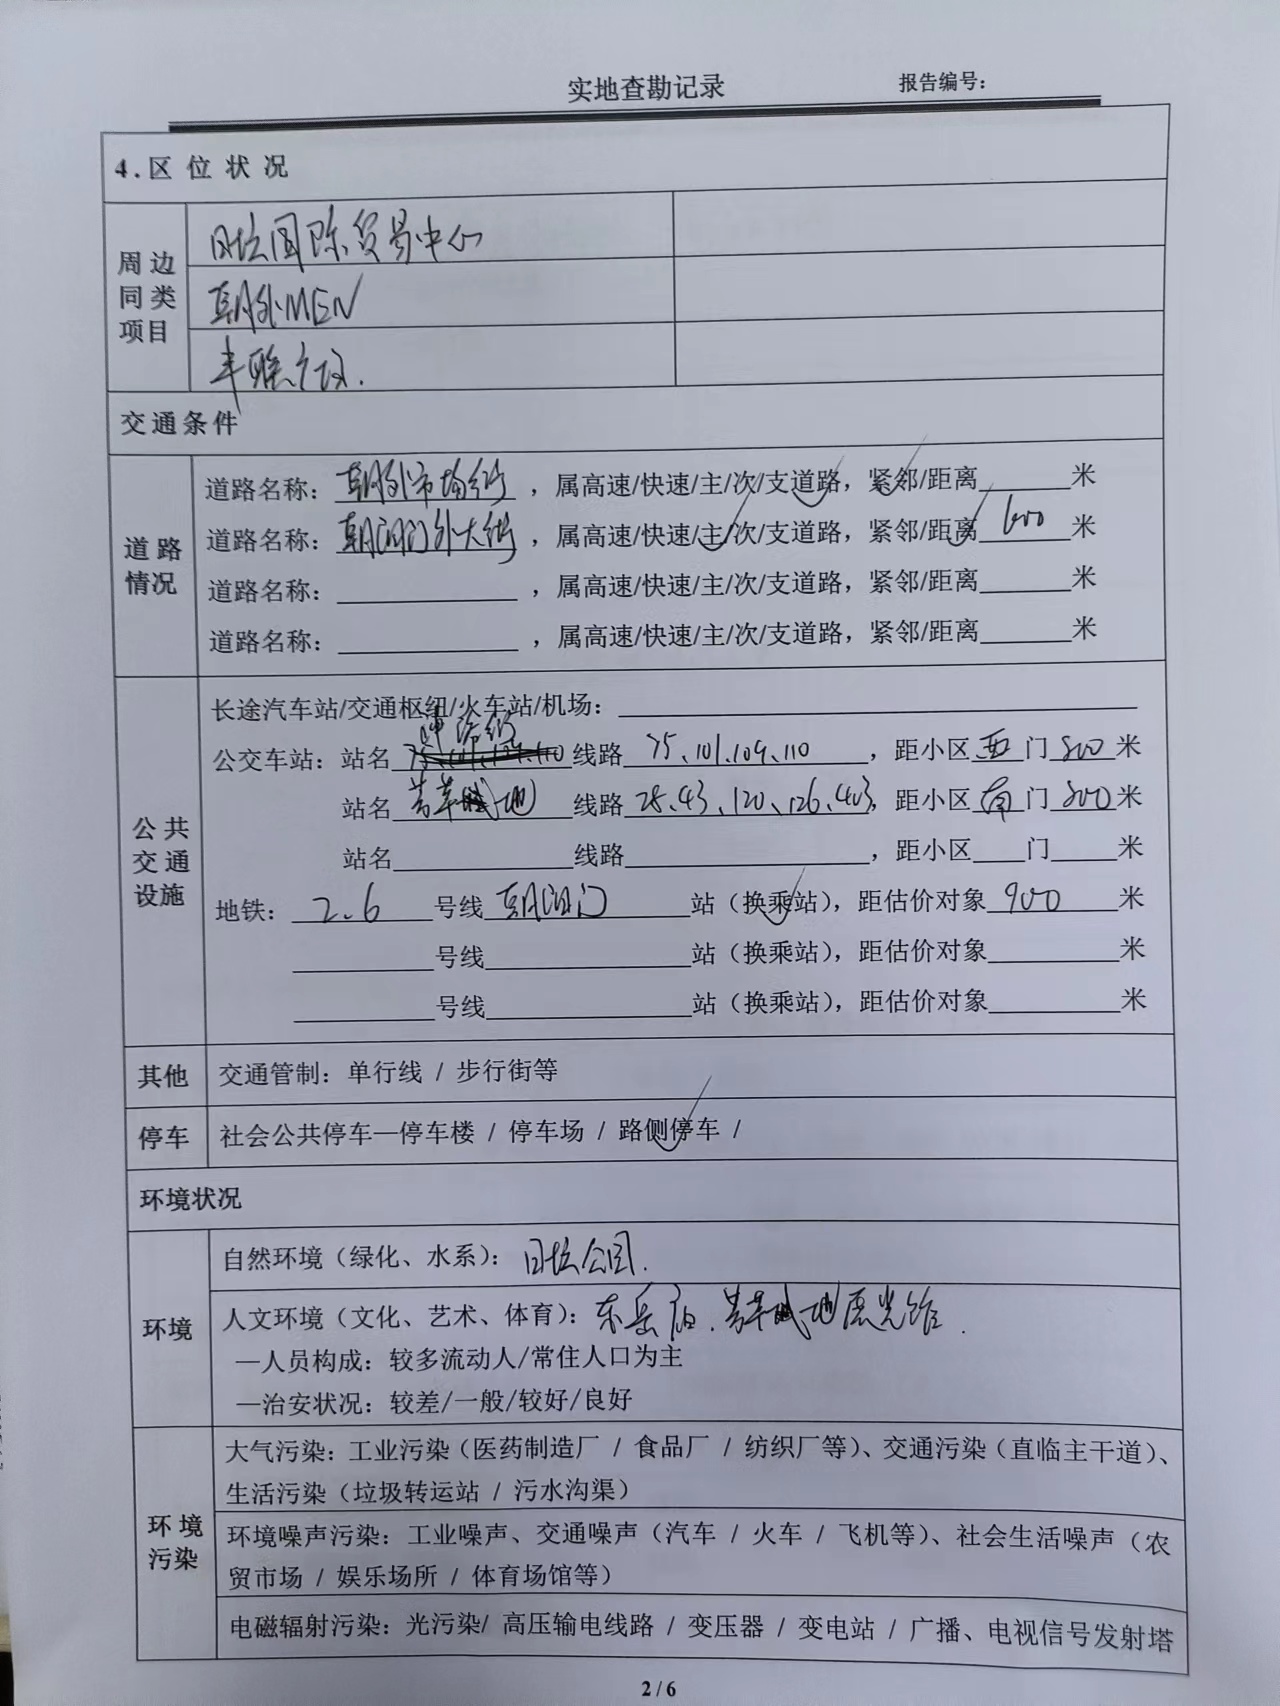 实地查勘记录 报告编号：
4.区位状况
周边同类项目
日坛国际贸易中心
朝外MEN
丰联广场.
交通条件
道路情况
道路名称：朝外市场街，属高速/快速/主/次/支道路，紧邻/距离______米
道路名称：朝阳门外大街，属高速/快速/主/次/支道路，紧邻/距离600米
道路名称：____________，属高速/快速/主/次/支道路，紧邻/距离______米
道路名称：____________，属高速/快速/主/次/支道路，紧邻/距离______米
公共交通设施
长途汽车站/交通枢纽/火车站/机场：____________
公交车站：站名神路街线路75、101、109、110，距小区西门800米
站名芳草地线路28、43、120、126、403，距小区南门800米
站名____________线路____________，距小区____门_____米
地铁：2、6号线朝阳门站（换乘站），距估价对象900米
______号线____________站（换乘站），距估价对象________米
______号线____________站（换乘站），距估价对象________米
其他 交通管制：单行线 / 步行街等
停车 社会公共停车—停车楼 / 停车场 / 路侧停车 /
环境状况
环境
自然环境（绿化、水系）：日坛公园.
人文环境（文化、艺术、体育）：东岳庙、芳草地
—人员构成：较多流动人/常住人口为主
—治安状况：较差/一般/较好/良好
环境污染
大气污染：工业污染（医药制造厂 / 食品厂 / 纺织厂等）、交通污染（直临主干道）、
生活污染（垃圾转运站 / 污水沟渠）
环境噪声污染：工业噪声、交通噪声（汽车 / 火车 / 飞机等）、社会生活噪声（农
贸市场 / 娱乐场所 / 体育场馆等）
电磁辐射污染：光污染/ 高压输电线路 / 变压器 / 变电站 / 广播、电视信号发射塔
2 / 6